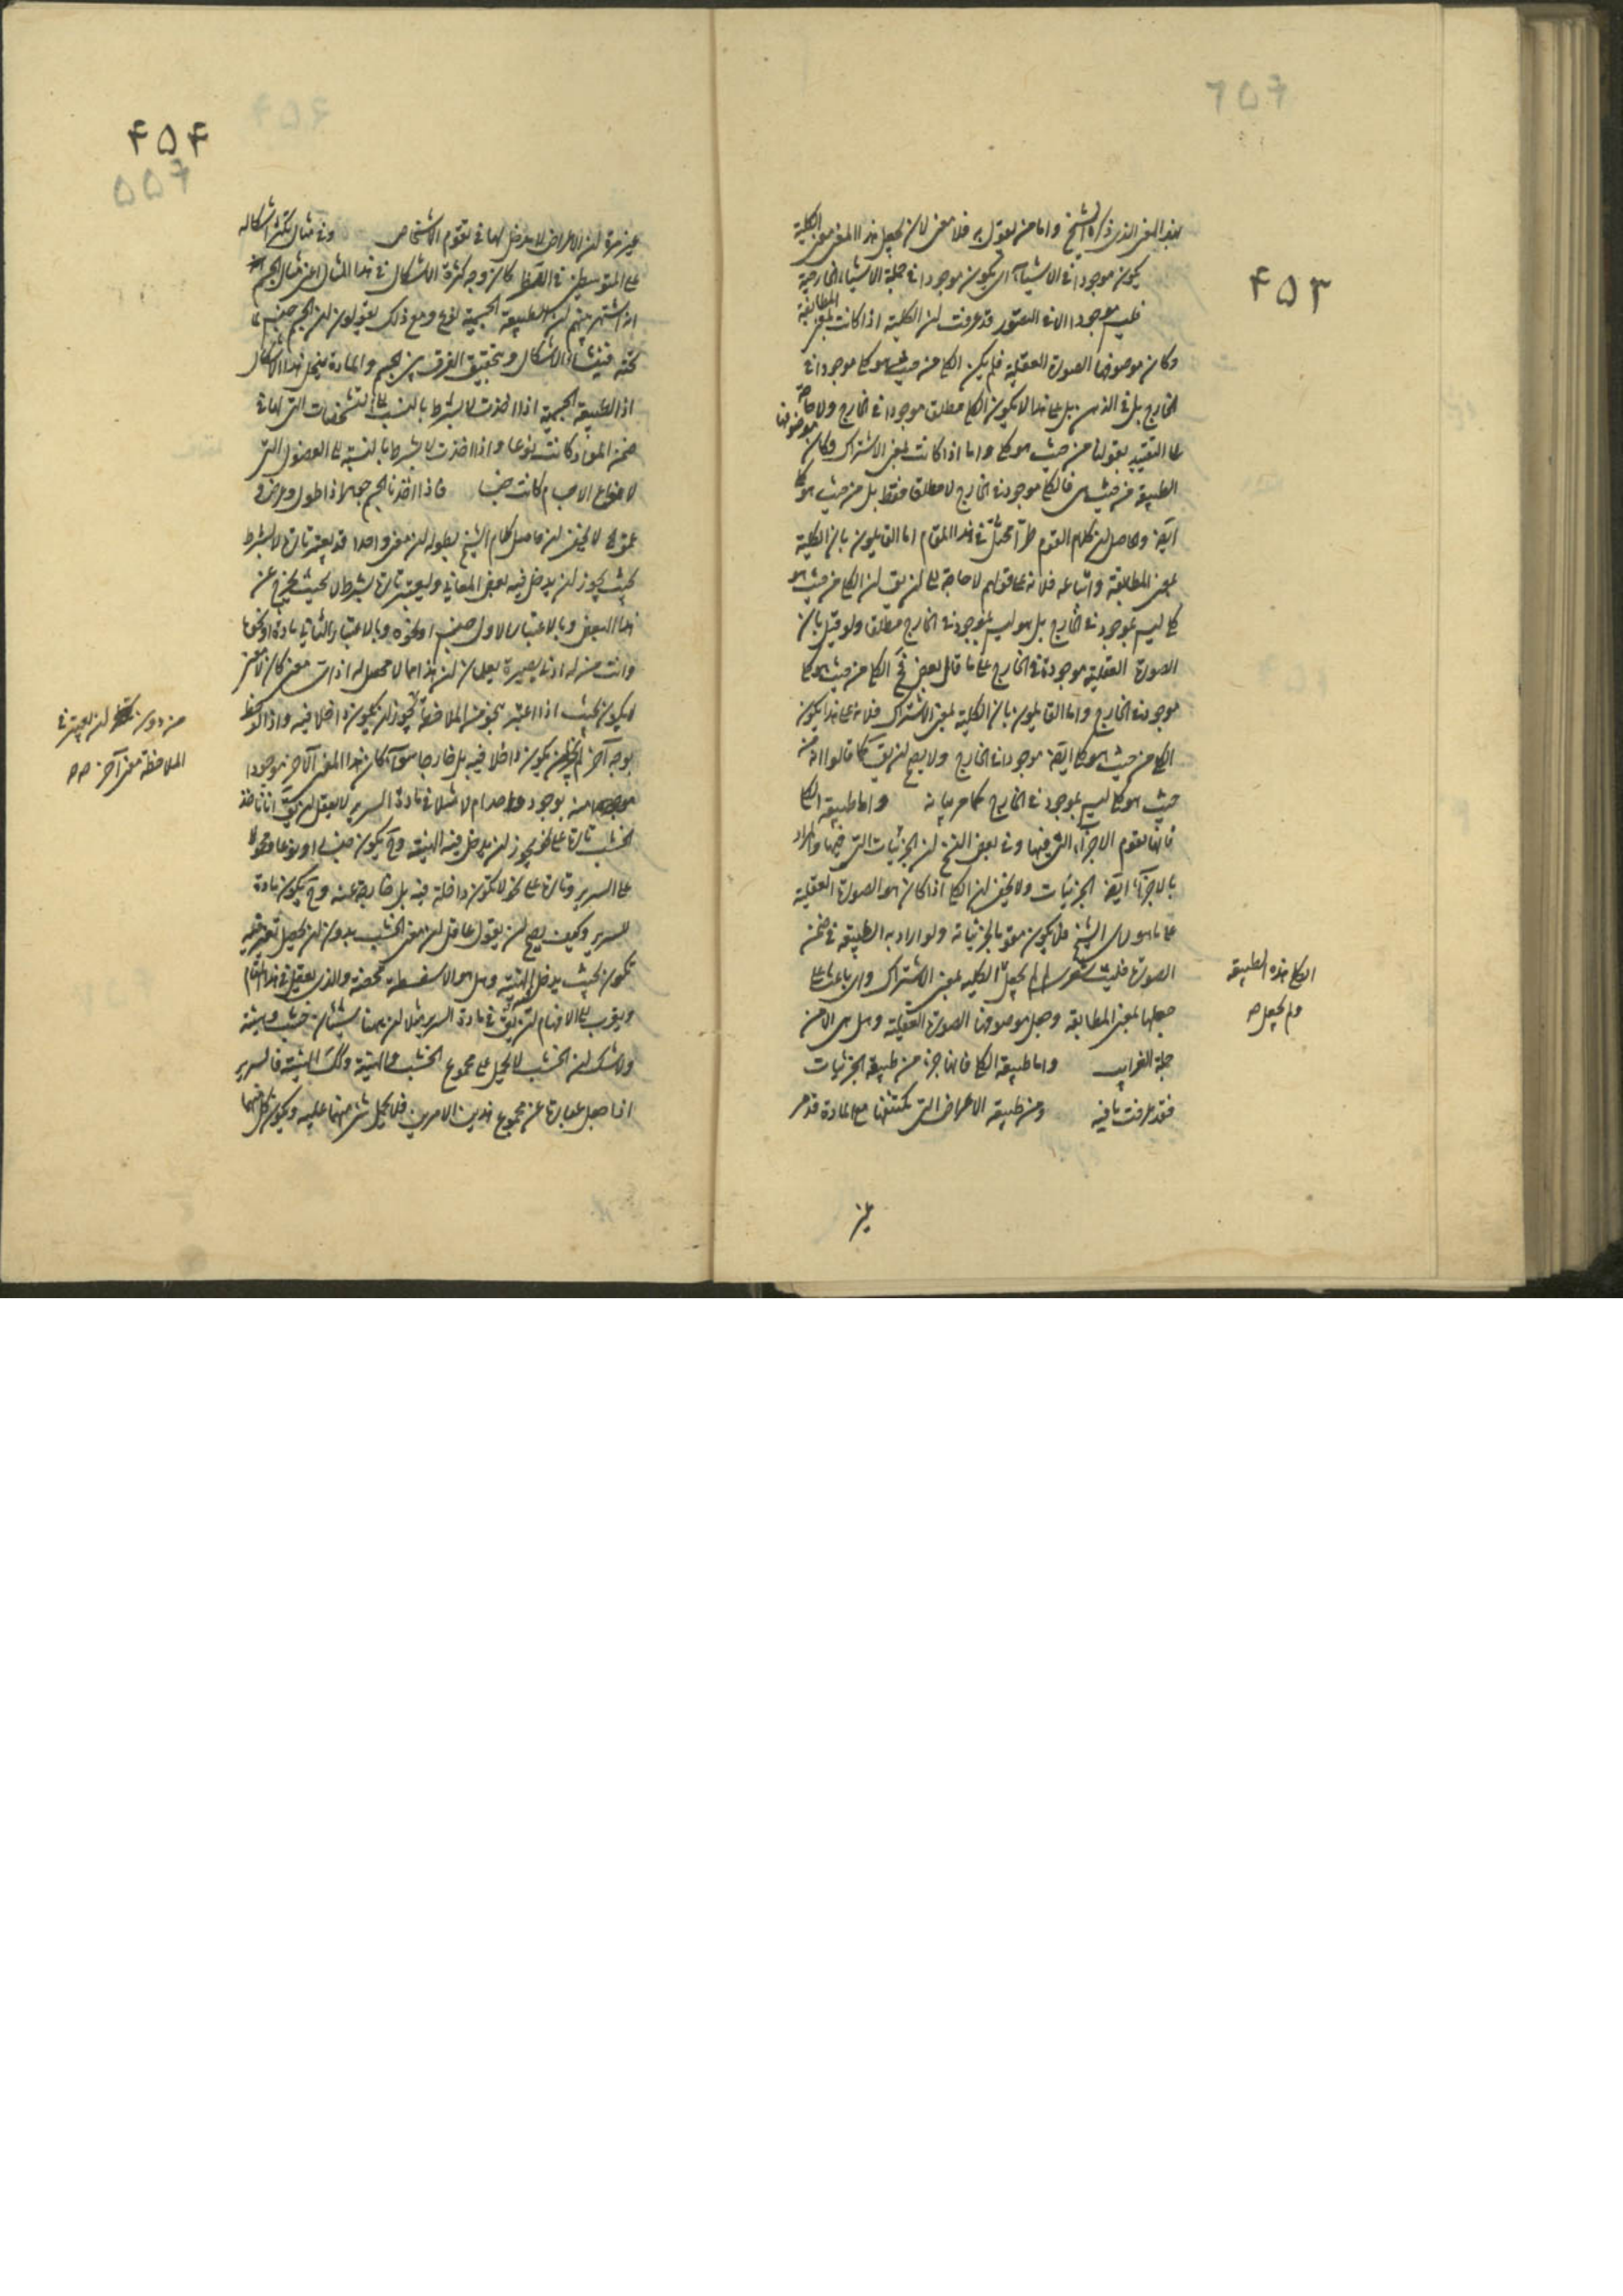 ۴۵۳
بهذا المعنى الذى ذكره الشيخ واما من يقول به فلا معنى لان يجعل هذا المعنى معنى الكلية
يكون موجودا فى الاشياء اى يكون موجودا فى جملة الاشياء الخارجية
فليس موجودا الا فى التصور قد عرفت ان الكلية اذا كانت بمعنى المطابقة
وكان موصوفها الصورة العقلية فلم يكن الكلى من حيث هو كلى موجودا فى
الخارج بل فى الذهن بل على هذا لا يكون الكلى مطلقا موجودا فى الخارج ولا حاجة
الى التقييد بقولنا من حيث هو كلى واما اذا كانت بمعنى الاشتراك وكان موصوفها
الطبيعة من حيث هى فالكلى موجود فى الخارج لا مطلقا فقط بل من حيث هو كلى
ايضا والحاصل ان كلام القوم طرا مختل فى هذا المقام اما القايلون بان الكلية
بمعنى المطابقة واتباعه فلانه على قولهم لا حاجة الى ان يق ان الكلى من حيث هو
كلى ليس بموجود فى الخارج بل هو ليس بموجود فى الخارج مطلقا ولو قيل بان
الصورة العقلية موجودة فى الخارج على ما قال بعض فح الكلى من حيث هو كلى
موجود فى الخارج واما القايلون بان الكلية بمعنى الاشتراك فلانه على هذا يكون
الكلى من حيث هو كلى ايضا موجودا فى الخارج ولا يصح ان يق كما قالوا انه من
حيث هو كلى ليس بموجود فى الخارج كما مر بيانه واما طبيعة الكلى
فانها تقوم الاجزاء التى فيها وفى بعض النسخ ان الجزئيات التى فيها والمراد
بالاجزاء ايضا الجزئيات ولا يخفى ان الكلى اذا كان هو الصورة العقلية
على ما هو راى الشيخ فلا يكون مقوما لجزئياته ولو اراد به الطبيعة فى ضمن
الصورة فليت شعرى لم لم يجعل الكلية بمعنى الاشتراك واى باعث على
جعلها بمعنى المطابقة وجعل موصوفها الصورة العقلية وهل هى الا من
جملة الغرايب واما طبيعة الكلى فانها جزء من طبيعة الجزئيات
فقد عرفت ما فيه ومن طبيعة الاعراض التى تكتنفها مع المادة قد مر
الكلى هذه الطبيعة
ولم يجعل صح
۴۵۴
غير مرة ان الاعراض لا مدخل لها فى تقوم الاشخاص وفى مثال تكثر اشكاله
على المتوسطين فى النظر كان وجه كثرة الاشكال فى هذا المثال اعنى مثال الجسم
انه اشتهر بينهم ان الطبيعة الجسمية نوع ومع ذلك يقولون ان الجسم جنس لما
تحته فينشأ الاشكال وبتحقيق الفرق بين الجسم والمادة ينحل هذا الاشكال
اذ الطبيعة الجسمية اذا اخذت لا بشرط بالنسبة الى التشخصات التى لها فى
ضمن المواد كانت نوعا واذا اخذت لا بشرط بالنسبة الى الفصول التى
لانواع الاجسام كانت جنسا فاذا اخذنا الجسم جوهرا ذا طول وعرض و
عمق الخ لا يخفى ان حاصل كلام الشيخ بطوله ان معنى واحدا قد يعتبر تارة لا بشرط
بحيث يجوز ان يدخل فيه بعض المعانى ويعتبر تارة بشرط لا بحيث يخرج عن
هذا البعض وبالاعتبار الاول جنس او نحوه وبالاعتبار الثانى مادة او نحوها
وانت من له ادنى بصيرة يعلم ان هذا مما لا محصل له اذ اى معنى كان لا معنى
لا يكون بحيث اذا اعتبر بنحو من الملاحظة يجوز ان يكون داخلا فيه واذا لوحظ
بوجه آخر لم يجز ان يكون داخلا فيه بل خارجا سواء كان هذا المعنى الآخر موجودا
معه بوجود واحد ام لا مثلا فى مادة السرير لا يعقل ان يق انا ناخذ
الخشب تارة على نحو يجوز ان يدخل فيه الهيئة وح يكون جنسا او نوعا ومحمولا
على السرير وتارة على نحو لا تكون داخلة فيه بل خارجة عنه وح يكون مادة
للسرير وكيف يصح ان يقول عاقل ان معنى الخشب بدون ان يحصل تغير فيه
تكون بحيث يدخل الهيئة وهل هو الا سفسطة محضة والذى يعقل فى هذا المقام
ويقرب الى الافهام ان يق فى مادة السرير مثلا ان ههنا شيئان خشب وهيئة
ولا شك ان الخشب لا يحمل على مجموع الخشب والهيئة وكذا الهيئة فالسرير
اذا جعل عبارة عن مجموع هذين الامرين فلا يحمل شئ منهما عليه ويكون كل منهما
من دون ان يعتبر فى
الملاحظة معنى آخر صح